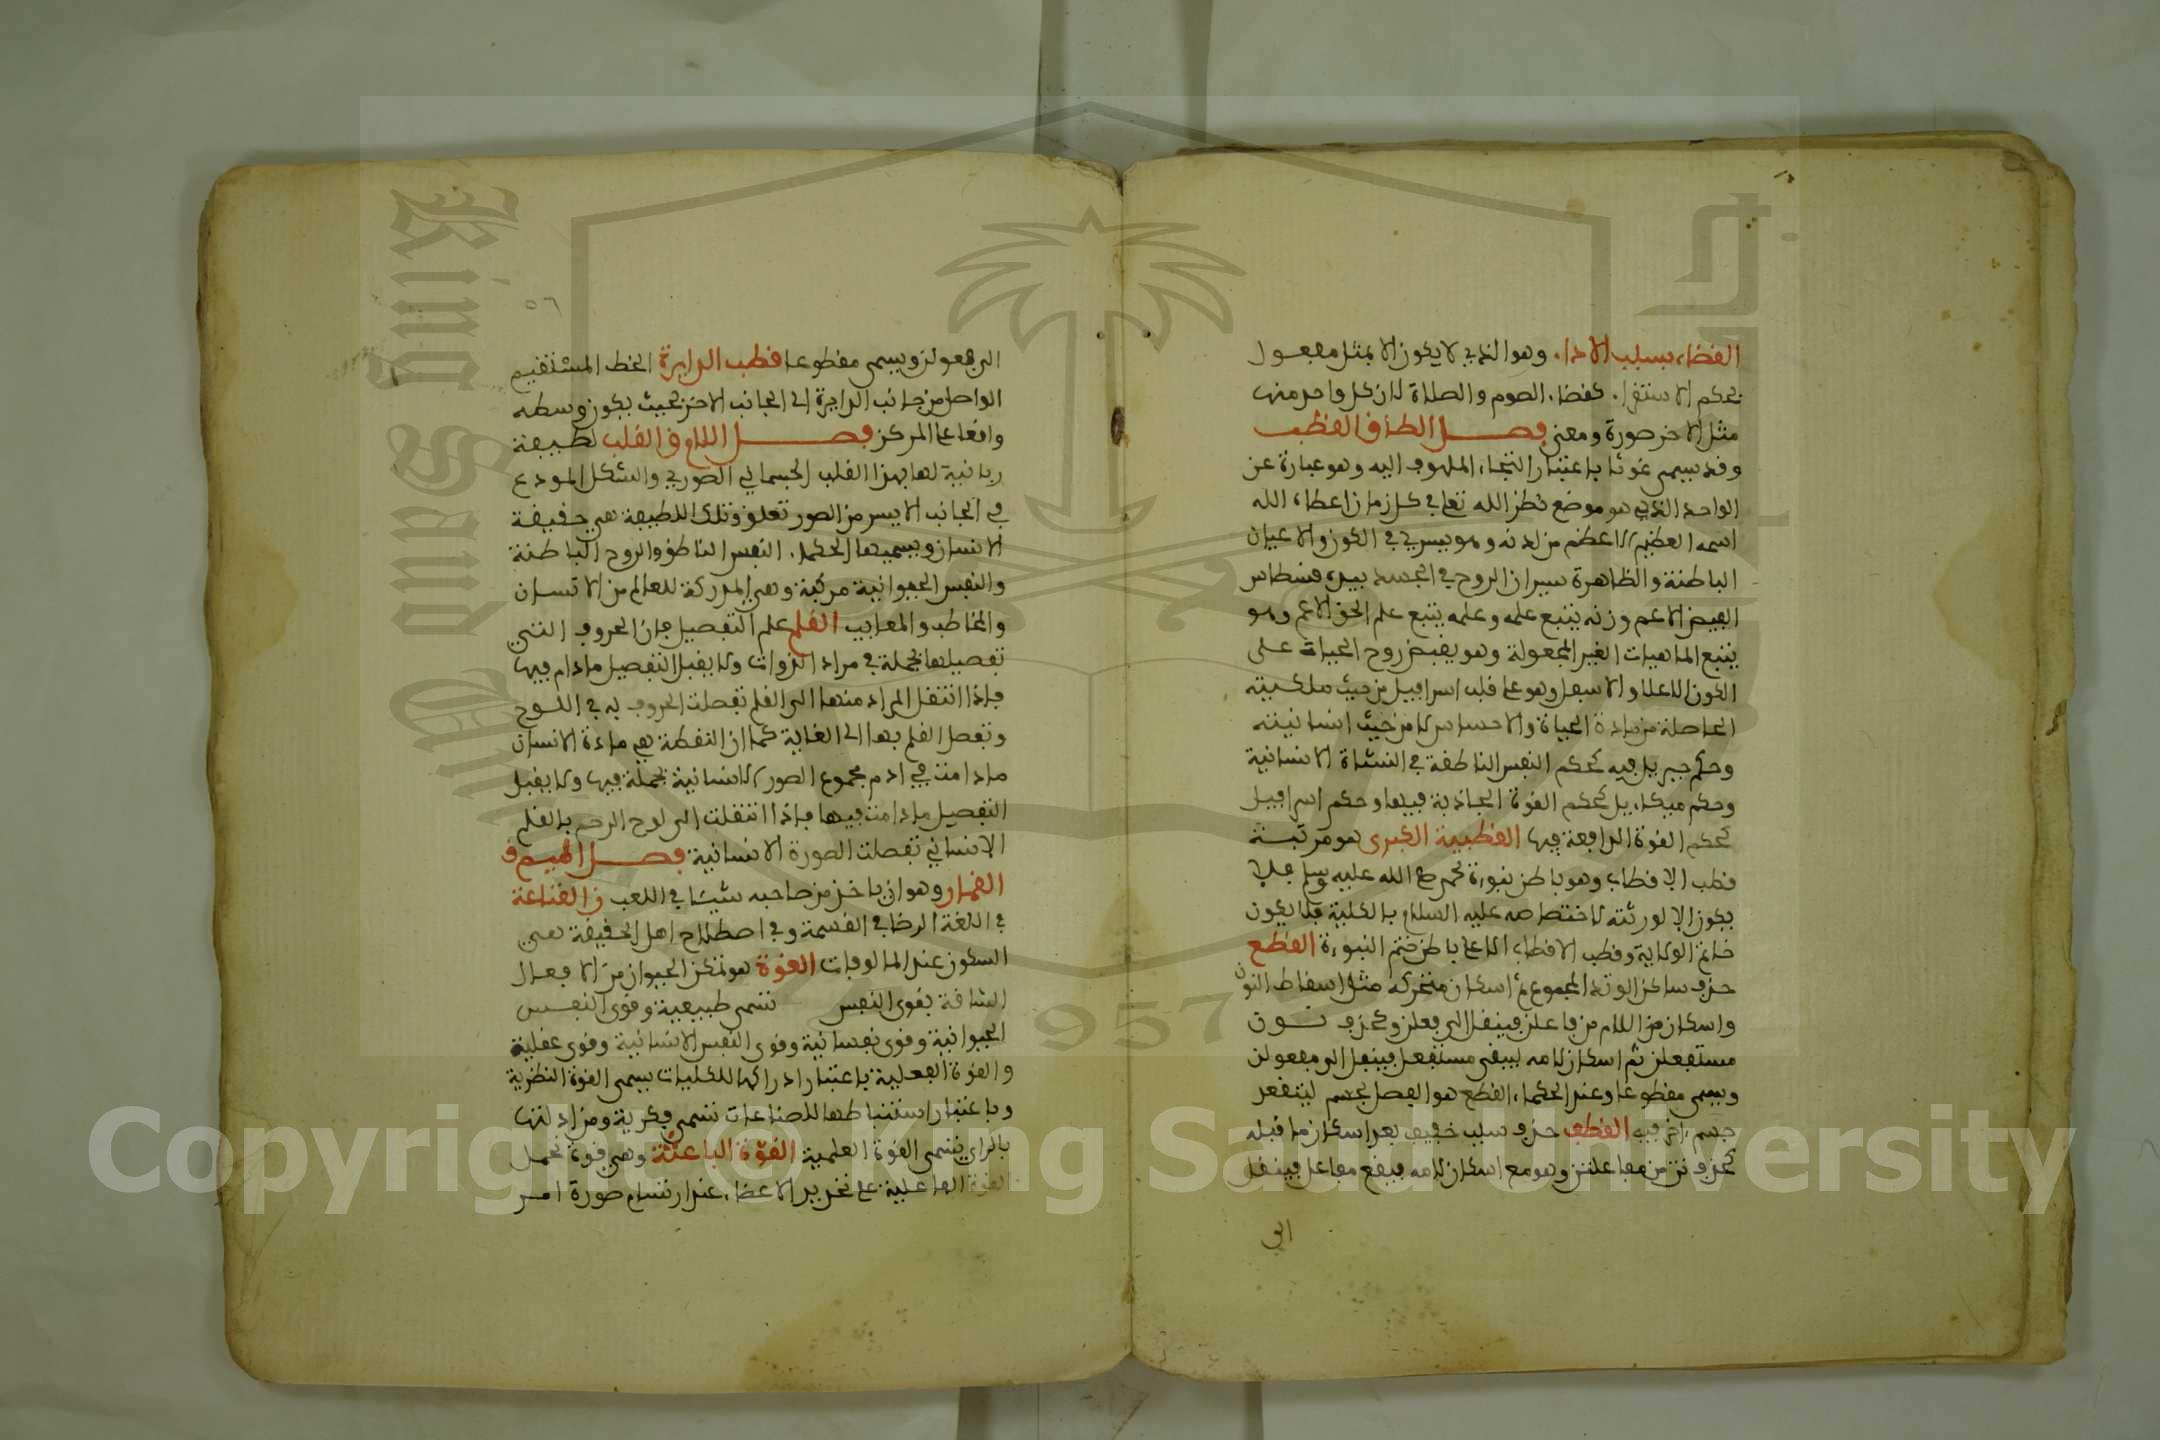 القضاء بسبب الاداء وهو الذي لا يكون الا بمثل معقول
بحكم الاستقراء كقضاء الصوم والصلاة لان كل واحد منهما
مثل الاخر صورة ومعنى فصل الطاء ف القطب
وقد يسمى غوثا باعتبار التجاء الملهوف اليه وهو عبارة عن
الواحد الذي هو موضع نظر الله تعلى في كل زمان اعطاه الله
اسمه العظيم الاعظم من لدنه وهو يسري في الكون والاعيان
الباطنة والظاهرة سيران الروح في الجسد بيده قسطاس
الفيض الاعم وزنه يتبع علمه وعلمه يتبع علم الحق الاعم وهو
يتبع الماهيات الغير المجعولة وهو يفيض روح الحيات على
الكون الاعلا والاسفل وهو على قلب اسرافيل من حيث ملكيته
الحاصلة من مادة الحياة والاحساس لا من حيث انسانيته
وحكم جبريل فيه كحكم النفس الناطقة في النشاة الانسانية
وحكم ميكاءيل كحكم القوة الجاذبة فيها وحكم اسرافيل
كحكم القوة الدافعة فيها القطبية الكبرى هو مرتبة
قطب الاقطاب وهو باطن نبوءة محمد صلى الله عليه وسلم فلا
يكون الا لورثته لاختصاصه عليه السلام بالكلية فلا يكون
خاتم الولاية وقطب الاقطاب الا على باطن ختم النبوءة القطع
حذف ساكن الوتد المجموع ثم اسكان متحركه مثل اسقاط النون
واسكان من اللام من فاعلن فينقل الى فعلن وكحذف نون
مستفعلن ثم اسكان لامه ليبقى مستفعل فينقل الى مفعولن
ويسمى مقطوعا وعند الحكماء القطع هو الفصل بجسم لينفعد
جسم اخر فيه القطف حذف سبب خفيف بعد اسكان ما قبله
كحذف تن من مفاعلتن وهو مع اسكان لامه فيبقى مفاعل فينقل
الى
٥٦
الى فعولن ويسمى مقطوعا قطب الدايرة الخط المستقيم
الواصل من جانب الدايرة الى الجانب الاخر بحيث يكون وسطه
واقعا على المركز فصل اللام ف القلب لطيفة
ربانية لها بهذا القلب الجسماني الصوري والشكل المودع
في الجانب الايسر من الصدر تعلق وتلك اللطيفة هي حقيقة
الانسان ويسميها الحكماء النفس الناطق والروح الباطنة
والنفس الحيوانية مركبة وهي المدركة للعالم من الانسان
والمخاطب والمعايب القلم علم التفصيل فان الحروف التي
تفصيلها مجملة في مداد الدوات ولا يقبل التفصيل مادام فيها
فاذا انتقل المداد منها الى القلم تفصلت الحروف به في اللوح
وتفصل القلم بها الى الغاية كما ان النطفة هي مادة الانسان
مادامت في ادم مجموع الصور الانسانية مجملة فيها ولا يقبل
التفصيل مادامت فيها فاذا انتقلت الى لوح الرحم بالقلم
الانساني تفصلت الصورة الانسانية فصل الميم ف
القمار وهو ان ياخذ من صاحبه شيئا في اللعب ن القناعة
في اللغة الرضا في القسمة وفي اصطلاح اهل الحقيقة هي
السكون عند المالوفات القوة هو تمكن الحيوان من الافعال
الشاقة بقوى النفس تسمى طبيعية وقوى النفس
الحيوانية وقوى نفسانية وقوى النفس الانسانية وقوى عقلية
والقوة العقلية باعتبار ادراكها للكليات يسمى القوة النظرية
وباعتبار استنباطها للصناعات تسمى فكرية ومن ادلتها
بالراي يسمى القوة العلمية القوة الباعثة وهي قوة تحمل
القوة الفاعلية على تحريك الاعضاء عند ارتسام صورة امر
Copyright © King Saud University
King Saud University
957